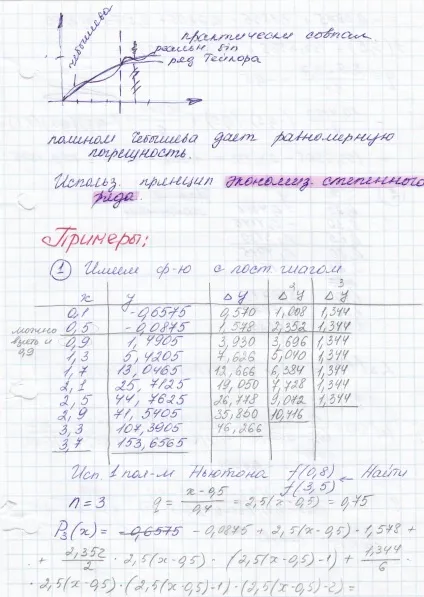 практически совпад.
Чебышева
реальн. ф-я
ряд Тейлора
полином Чебышева дает равномерную
погрешность.
Использ. принцип экономиз. степенного
ряда.
Примеры:
1 Имеем ф-ю с пост. шагом
x y Δy Δ²y Δ³y
0,1 -0,6575 0,570 1,008 1,344
0,5 -0,0875 1,578 2,352 1,344
можно взять и 0,9
0,9 1,4905 3,930 3,696 1,344
1,3 5,4205 7,626 5,040 1,344
1,7 13,0465 12,666 6,384 1,344
2,1 25,7125 19,050 7,728 1,344
2,5 44,7625 26,778 9,072 1,344
2,9 71,5405 35,850 10,416
3,3 107,3905 46,266
3,7 153,6565
Исп. 1 пол-м Ньютона f(0,8) Найти
f(3,5)
n=3 q = x-0,5 / 0,4 = 2,5(x-0,5) = 0,75
P₃(x) = -0,6575 - 0,0875 + 2,5(x-0,5)·1,578 +
+ 2,352/2 · 2,5(x-0,5) · (2,5(x-0,5)-1) + 1,344/6 ·
· 2,5(x-0,5)·(2,5(x-0,5)-1)·(2,5(x-0,5)-2) =